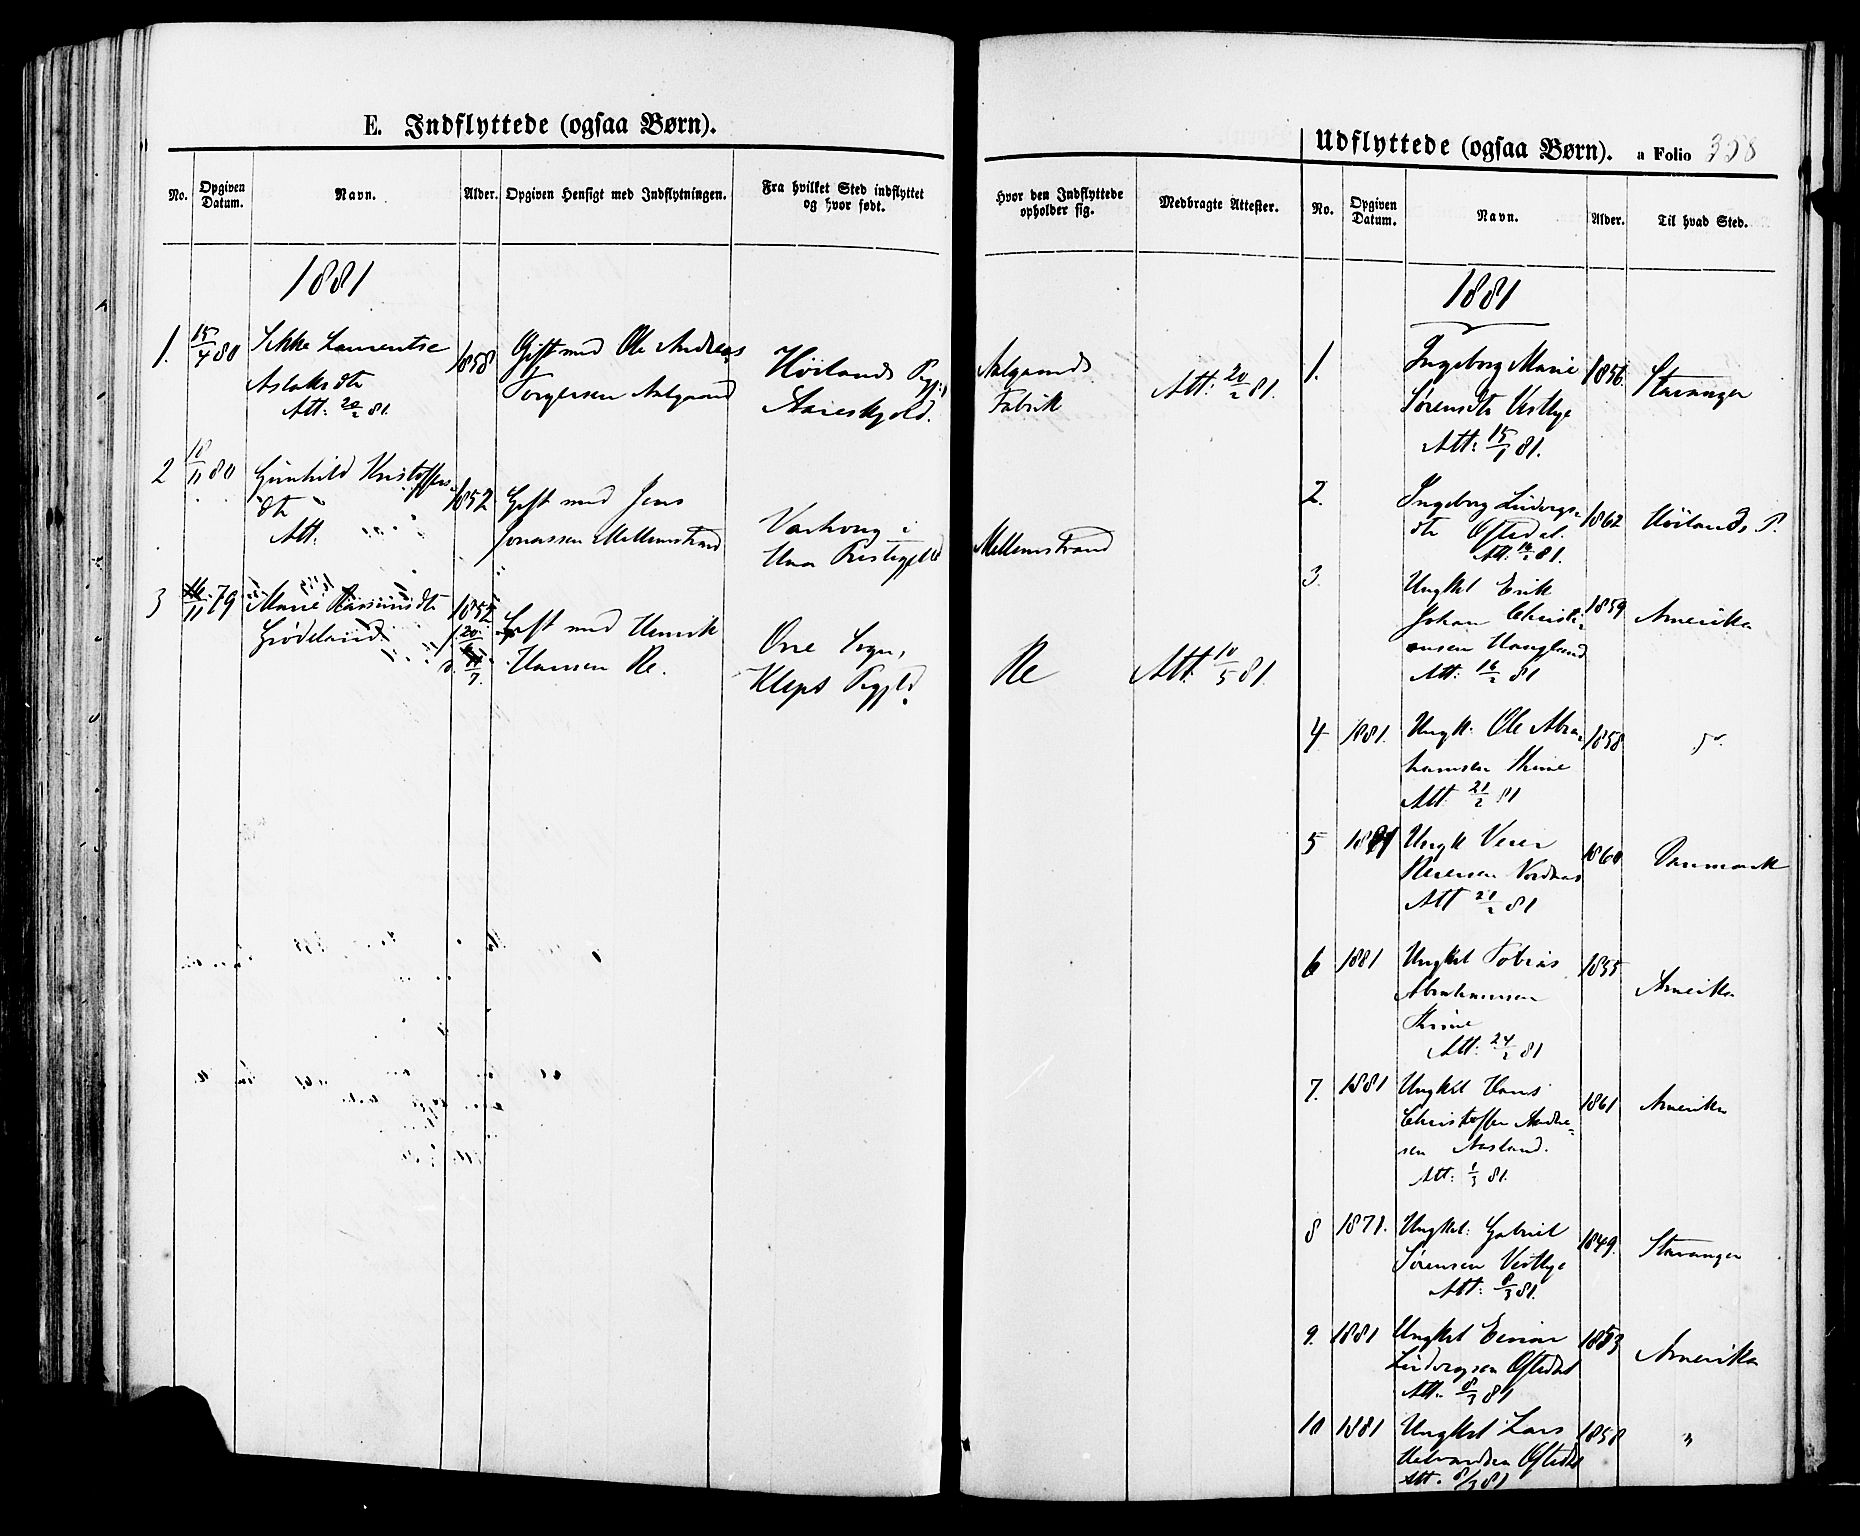 E. Indflyttede (ogsaa Børn).
No. Opgiven Datum. Navn. Alder. Opgiven Hensigt med Indflytningen. Fra hvilket Sted indflyttet og hvor født.
1881
1. 15/4 80 Laurentse 1858 Gift med Ole Andreas Høilands
Aslaksdtr Torgersen Aalgaard
Att: 20/2 81.
2 18/11 80 Gunhild Kristoffers- 1852 Gift med Jens
dtr Jonassen Mellemstrand Varhoug i
Att: Præstegjeld
3 11 79 Marie Rasmusdtr 1852 Gift med Henrik Orre Sogn,
Grødeland Hansen Re. Kleps Pgjeld.
Hvor den Indflyttede opholder sig. Medbragte Attester.
Aalgaards Att: 20/2 81.
Fabrik
Mellemstrand
Re Att. 10/5 81.
Udflyttede (ogsaa Børn). a Folio 358
No. Opgiven Datum. Navn. Alder. Til hvad Sted.
1881
1. Ingeborg Marie 1856. Stavanger
Sørensdtr Vestlye
Att: 15/1 81.
2. Ingeborg Lindvigs- 1862 Høilands P.
dtr Oftedal.
Att. 81.
3. Ungkl Erik 1859 Amerika
Johan Christi-
ansen Haugland
Att: 16/2 81
4 1881. Ungk: Ole Abra- 1858 do.
hamsen Skrime
Att 21/2 81
5 1881 Ungk 1860 Danmark
Reiersen
Att 21/2 81
6 1881 Ungkl Tobias 1855 Amerika
Abrahamsen
Att: 24/2 81
7. 1881 Ungkl Hans 1861 Amerika
Christoffer Andre-
sen Aasland.
Att: 1/3 81.
8 1871. Ungkl: Gabriel 1849. Stavanger
Sørensen Vestlye
Att: 8/3 81.
9. 1881 Ungkl Einar 1853 Amerika
Lindvigsen Oftedal
Att. 8/3 81
10 1881 Ungkl Lars 1858 "
Oftedal
Att. 8/3 81